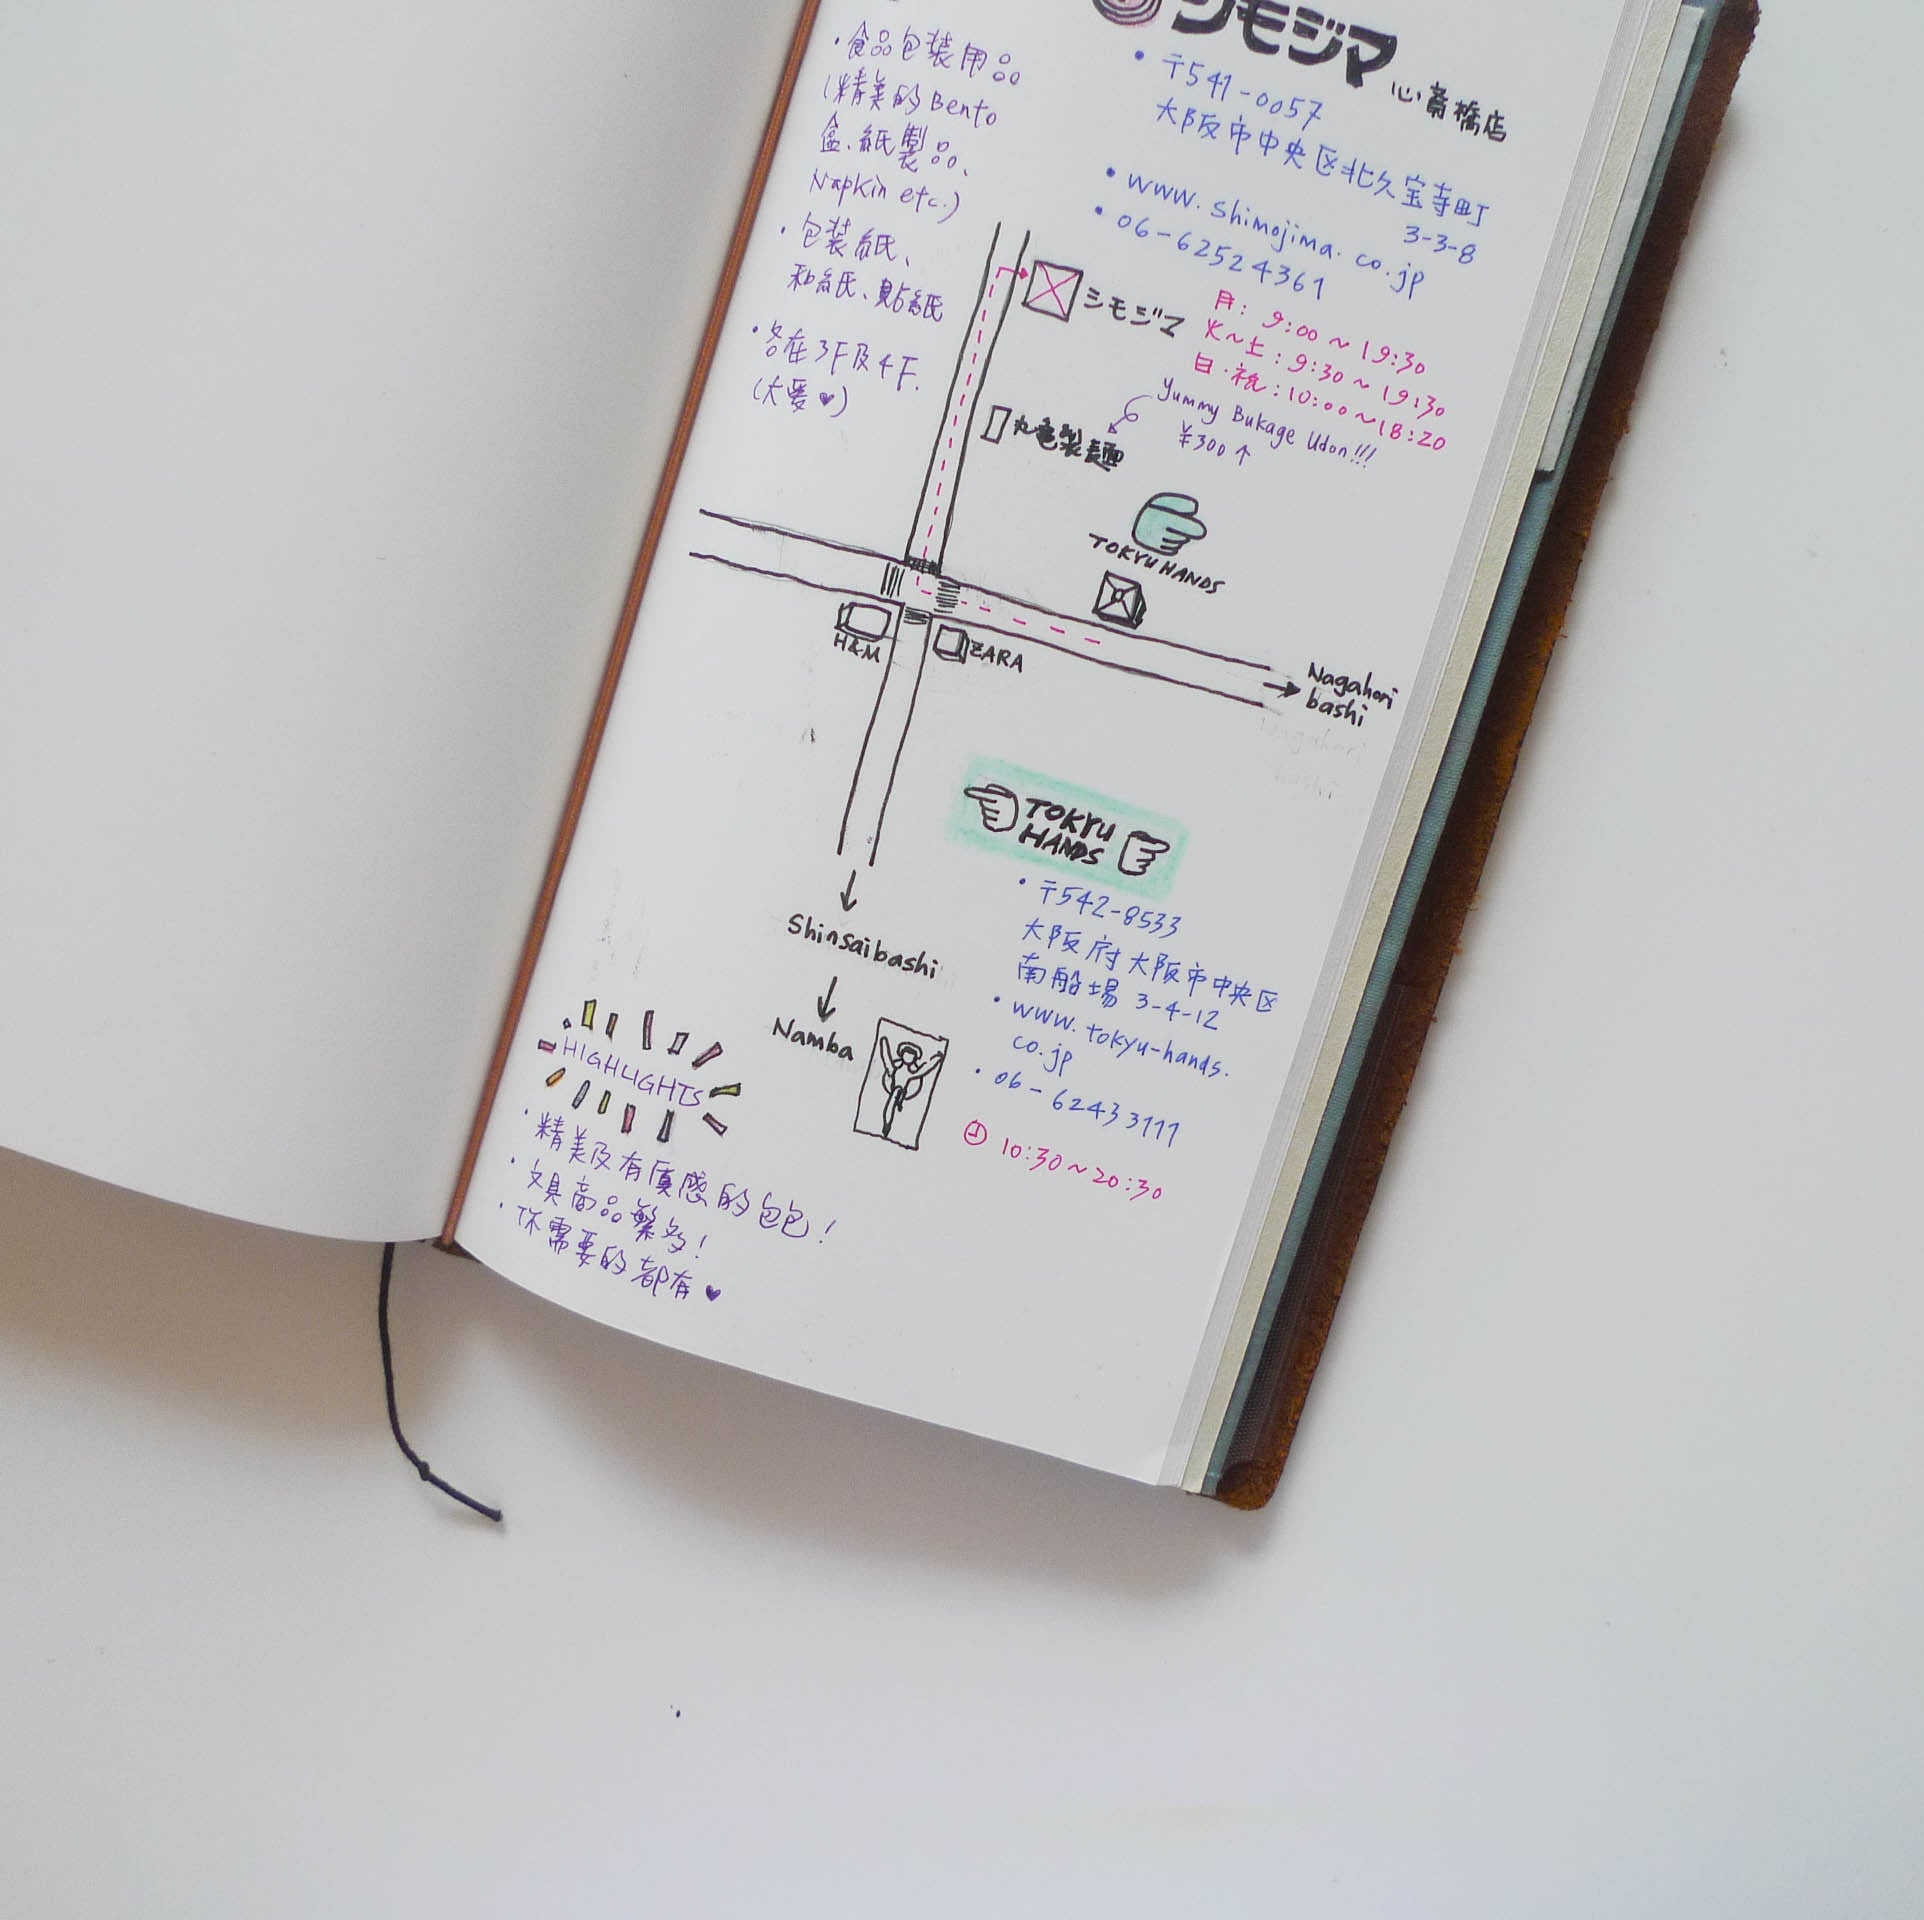 シモジマ 心斎橋店
・〒541-0057
大阪市中央区北久宝寺町
3-3-8
・www.shimojima.co.jp
・06-62524361
月: 9:00~19:30
火~土: 9:30~19:30
日・祝: 10:00~18:20
・食品包装用品
(精美的Bento
盒、紙製品、
Napkin etc.)
・包装紙、
和紙、貼紙
・各在3F及4F.
(大愛♥)
シモジマ
丸亀製麺
Yummy Bukage Udon!!!
¥300↑
TOKYU HANDS
H&M
ZARA
→ Nagahori
bashi
↓
Shinsaibashi
↓
Namba
TOKYU
HANDS
・〒542-8533
大阪府大阪市中央区
南船場 3-4-12
・www.tokyu-hands.
co.jp
・06-62433111
10:30~20:30
HIGHLIGHTS
・精美及有質感的包包!
・文具商品繁多!
・你需要的都有♥